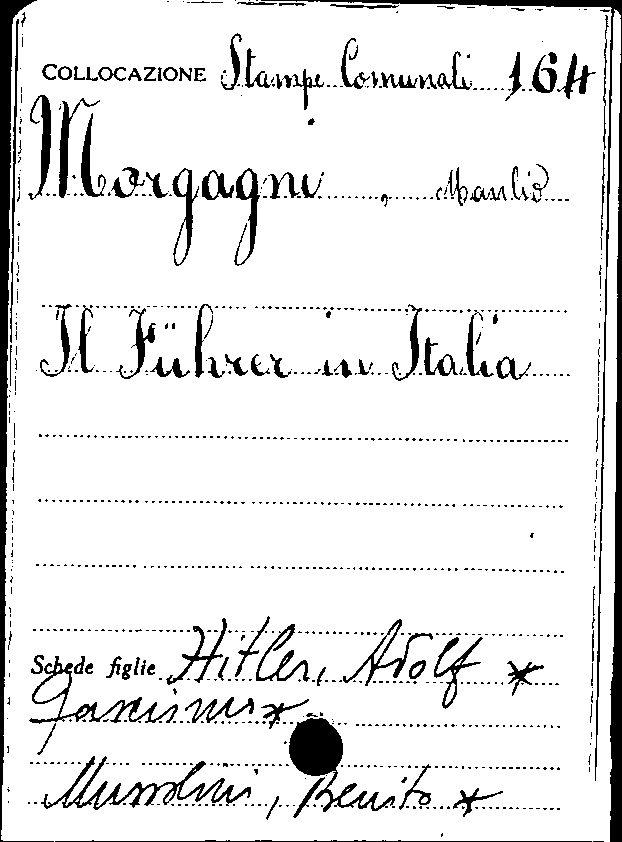 COLLOCAZIONE Stampe Comunali 164
Morgagni, Manlio
Il Führer in Italia
Schede figlie Hitler, Adolf *
Fascismo *
Mussolini, Benito *